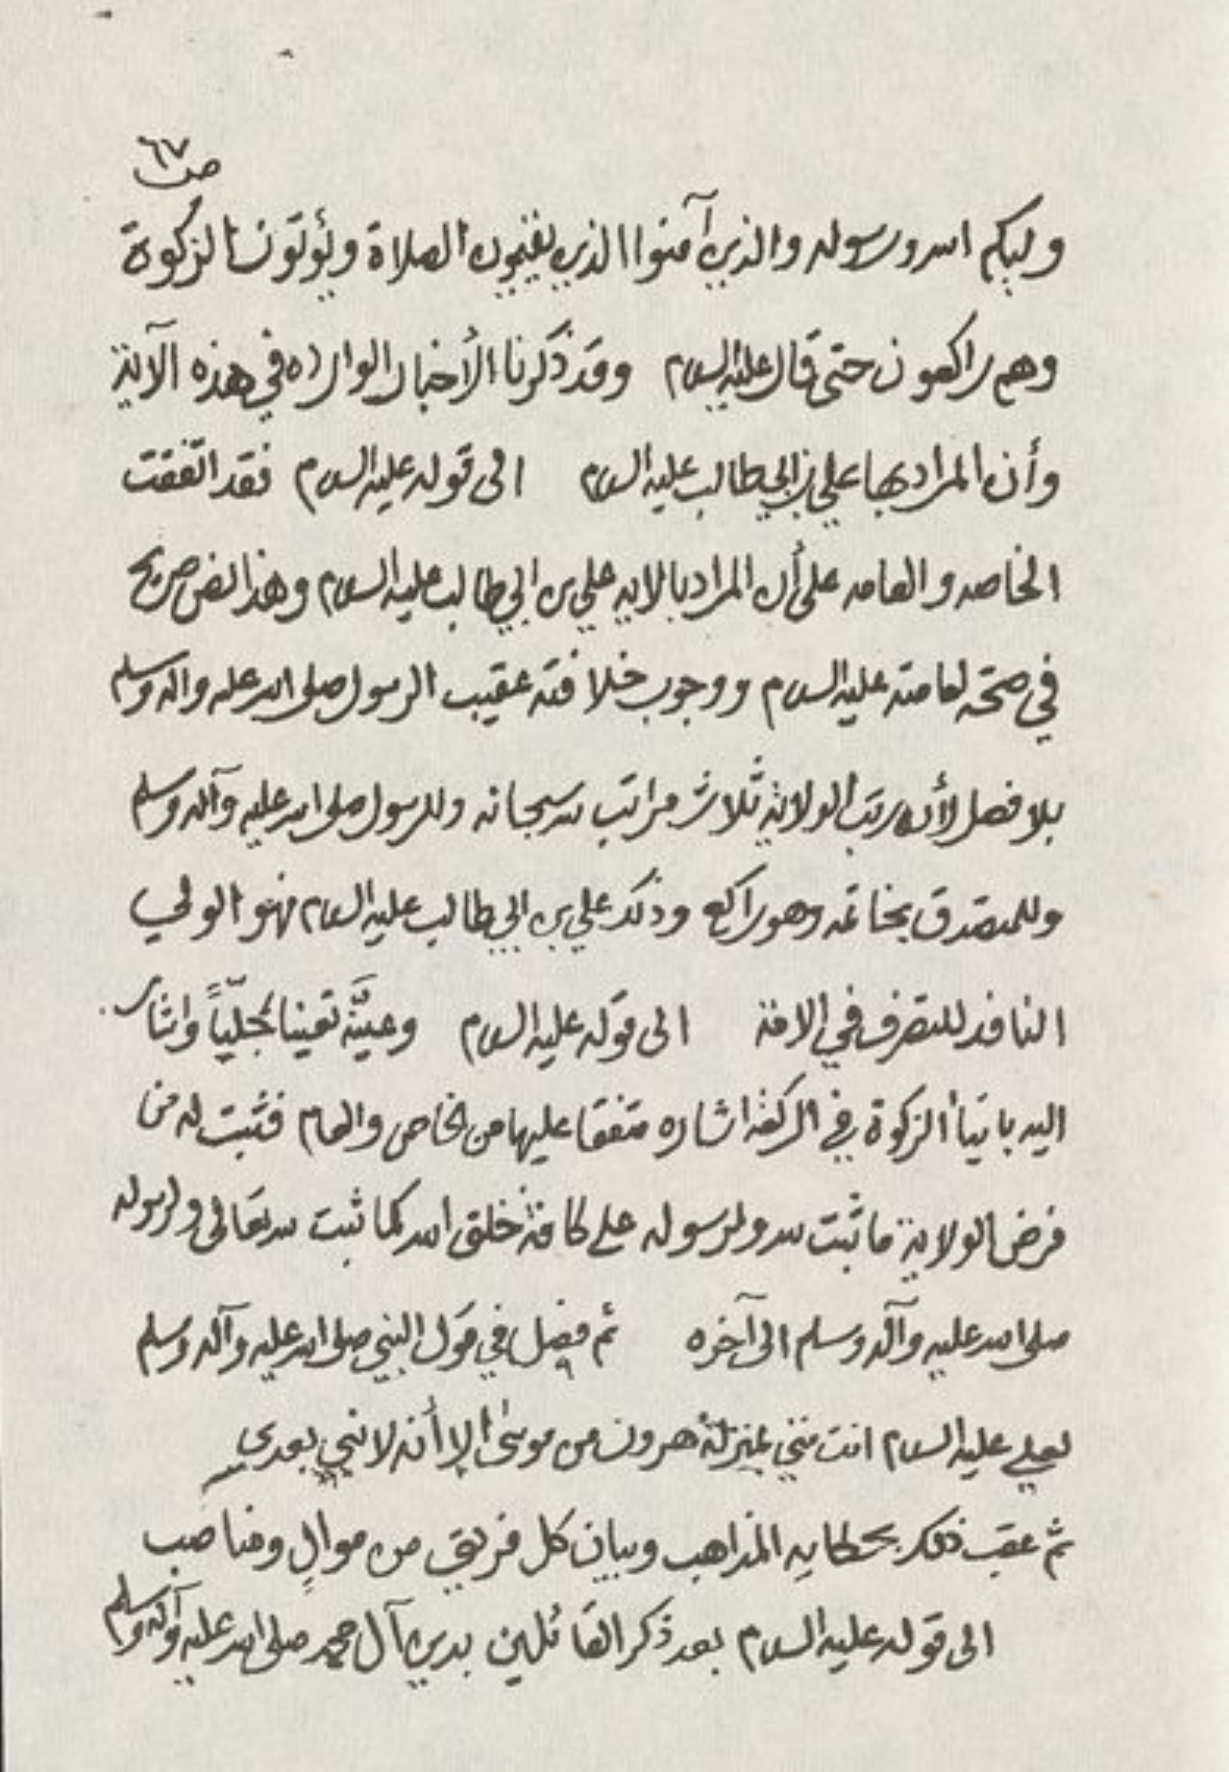 ص ٦٧
وليكم الله ورسوله والذين آمنوا الذين يقيمون الصلاة ويؤتون الزكوة
وهم راكعون حتى قال عليه السلام وقد ذكرنا الأخبار الوارده في هذه الآية
وأن المراد بها علي بن ابي طالب عليه السلام الى قوله عليه السلام فقد اتفقت
الخاصه والعامه على أن المراد بالايه علي بن ابي طالب عليه السلام وهذا نص صريح
في صحة امامته عليه السلام ووجوب خلافته عقيب الرسول صلى الله عليه واله وسلم
بلا فصل لأن رتب الولاية ثلاث مراتب لله سبحانه وللرسول صلى الله عليه وآله وسلم
وللمتصدق بخاتمه وهو راكع وذلك علي بن ابي طالب عليه السلام فهو الولي
النافذ للتصرف في الامة الى قوله عليه السلام وعيَّنه تعيينا جليّاً واشار
اليه بايتاء الزكوة في الركعة اشاره متفقا عليها من الخاص والعام فثبت له من
فرض الولاية ما ثبت لله ولرسوله على كافة خلق الله كما ثبت لله تعالى ولرسوله
صلى الله عليه وآله وسلم الى آخره ثم فصل في قول النبي صلى الله عليه وآله وسلم
لعلي عليه السلام انت مني بمنزلة هرون من موسى إلا أنه لا نبي بعدي
ثم عقب ذلك بحكاية المذاهب وبيان كل فريق من موالٍ ومناصب
الى قوله عليه السلام بعد ذكر القائلين بدين آل محمد صلى الله عليه وآله وسلم